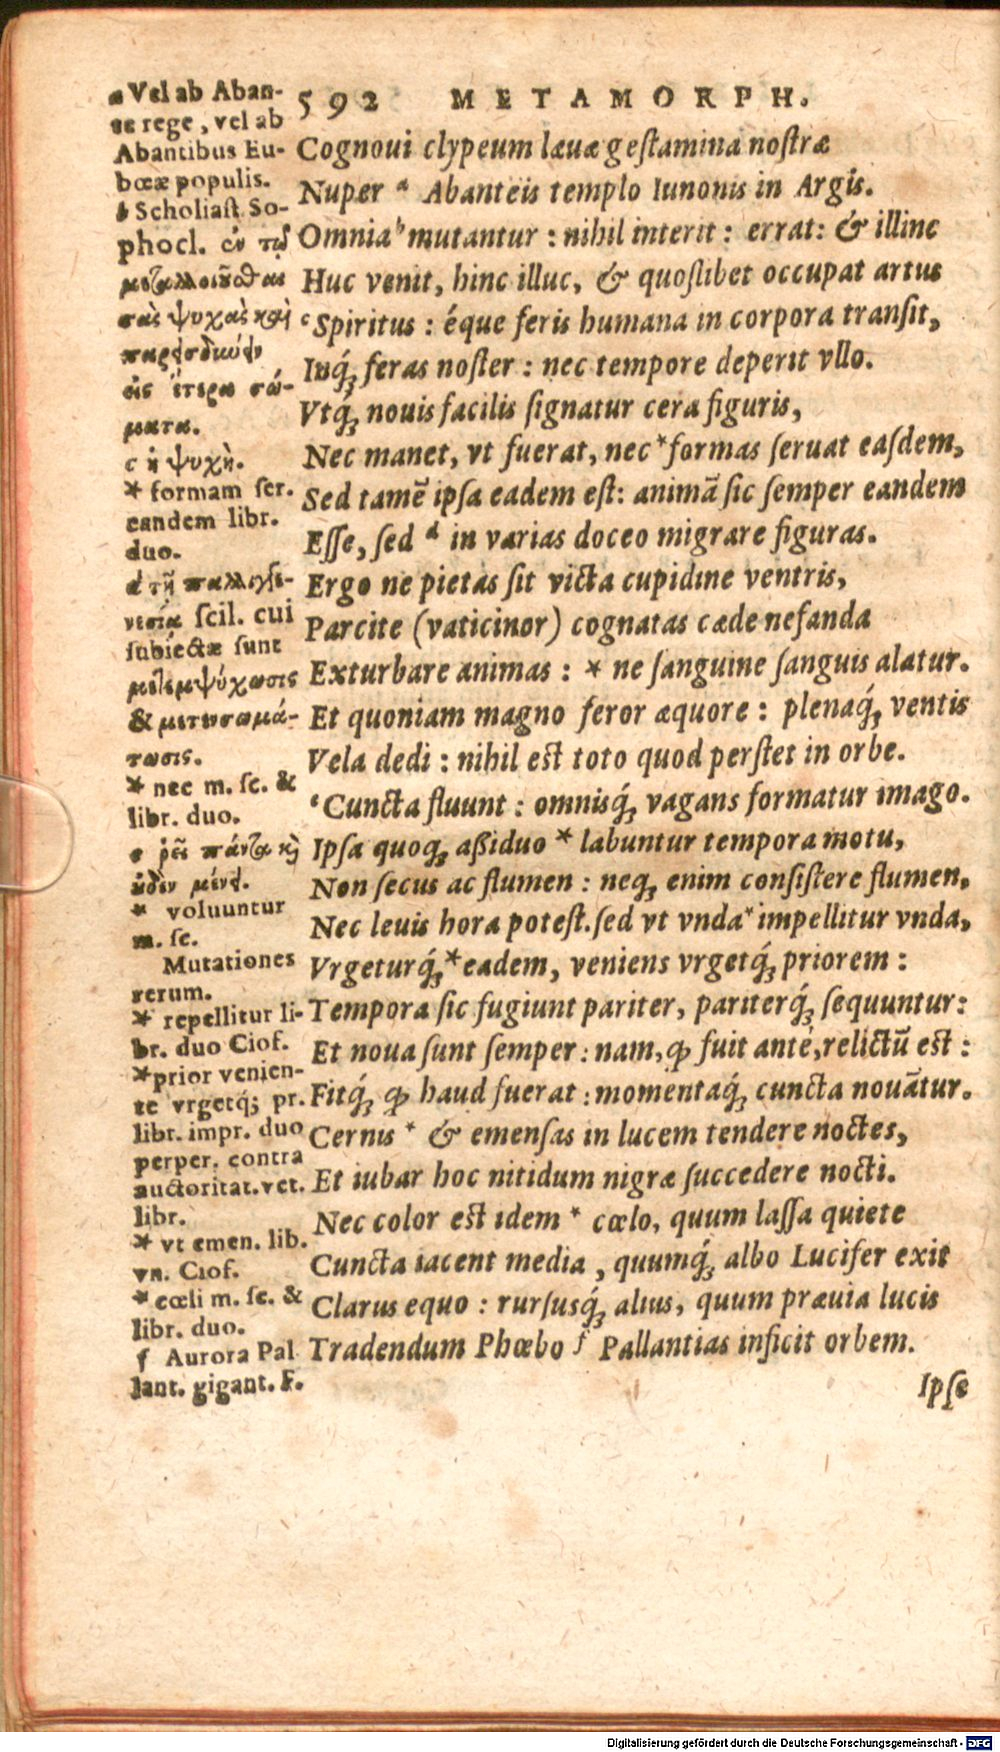 592 METAMORPH.
Cognoui clypeum læuæ geſtamina noſtræ
Nuper ᵃ Abanteis templo Iunonis in Argis.
Omnia ᵇ mutantur : nihil interit : errat: & illinc
Huc venit, hinc illuc, & quoſlibet occupat artus
ᶜ Spiritus : éque feris humana in corpora tranſit,
Inq́; feras noſter : nec tempore deperit vllo.
Vtq́; nouis facilis ſignatur cera figuris,
Nec manet, vt fuerat, nec * formas ſeruat eaſdem,
Sed tamē ipſa eadem eſt: animā ſic ſemper eandem
Eſſe, ſed ᵈ in varias doceo migrare figuras.
Ergo ne pietas ſit victa cupidine ventris,
Parcite (vaticinor) cognatas cæde nefanda
Exturbare animas : * ne ſanguine ſanguis alatur.
Et quoniam magno feror æquore : plenaq́; ventis
Vela dedi : nihil eſt toto quod perſtet in orbe.
ᵉ Cuncta fluunt : omnisq́; vagans formatur imago.
Ipſa quoq; aßiduo * labuntur tempora motu,
Non ſecus ac flumen : neq; enim conſiſtere flumen,
Nec leuis hora poteſt. ſed vt vnda * impellitur vnda,
Vrgeturq́; * eadem, veniens vrgetq́; priorem :
Tempora ſic fugiunt pariter, pariterq́; ſequuntur:
Et noua ſunt ſemper : nam, ꝙ fuit antè, relictū eſt :
Fitq́; ꝙ haud fuerat : momentaq́; cuncta nouātur.
Cernis * & emenſas in lucem tendere noctes,
Et iubar hoc nitidum nigræ ſuccedere nocti.
Nec color eſt idem * cœlo, quum laſſa quiete
Cuncta iacent media, quumq́; albo Lucifer exit
Clarus equo : rurſusq́; alius, quum præuia lucis
Tradendum Phœbo ᶠ Pallantias inficit orbem.
Ipſe
a Vel ab Aban-
te rege, vel ab
Abantibus Eu-
bœæ populis.
b Scholiaſt. So-
phocl. ἐν τῷ
μεταλλοιοῦσθαι
τὰς ψυχὰς καὶ
εἰς ἕτερα σώ-
ματα.
c ἡ ψυχὴ.
* formam ſer.
eandem libr.
duo.
d τῇ παλιγγε-
νεσίᾳ ſcil. cui
ſubiectæ ſunt
μετεμψύχωσις
& μετενσωμά-
τωσις.
* nec m. ſc. &
libr. duo.
e ῥεῖ πάντα καὶ
οὐδὲν μένει.
* voluuntur
m. ſc.
Mutationes
rerum.
* repellitur li-
br. duo Ciof.
* prior venien-
te vrgetq́; pr.
libr. impr. duo
perper. contra
auctoritat. vet.
libr.
* vt emen. lib.
vn. Ciof.
* cœli m. ſc. &
libr. duo.
f Aurora Pal
lant. gigant. F.
Digitalisierung gefördert durch die Deutsche Forschungsgemeinschaft - DFG